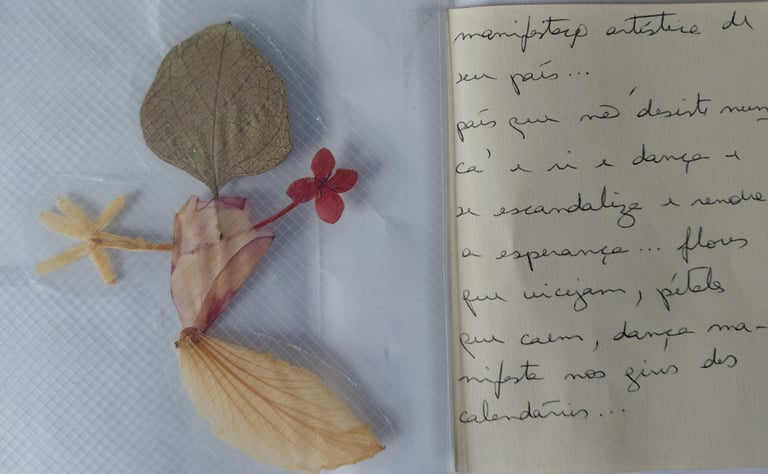 manifestaçõ artística de
seu país...
país que não desiste nun
ca e ri e dança e
se escandaliza e
a esperança... flores
que vicejam, pétalas
que caem, dança ma-
nifesta nos giros dos
calendários...